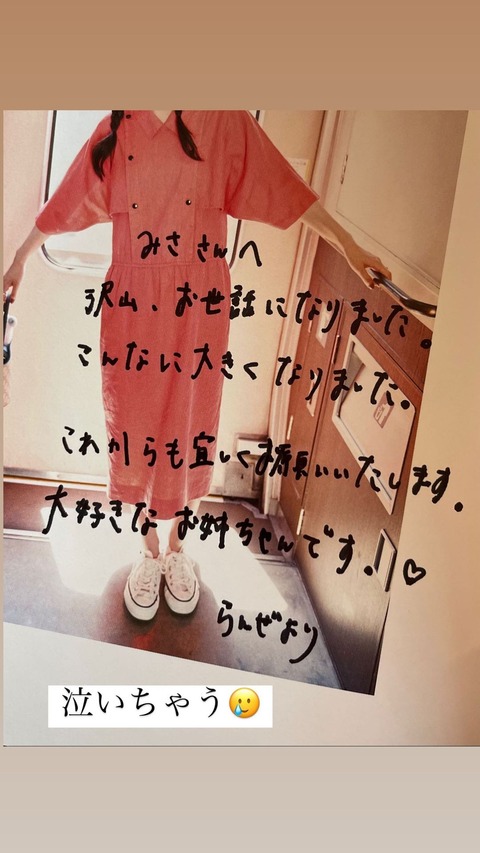 みささんへ
沢山、お世話になりました。
こんなに大きくなりました。
これからも宜しくお願いいたします。
大好きなお姉ちゃんです!♡
らんぜより
泣いちゃう🥲